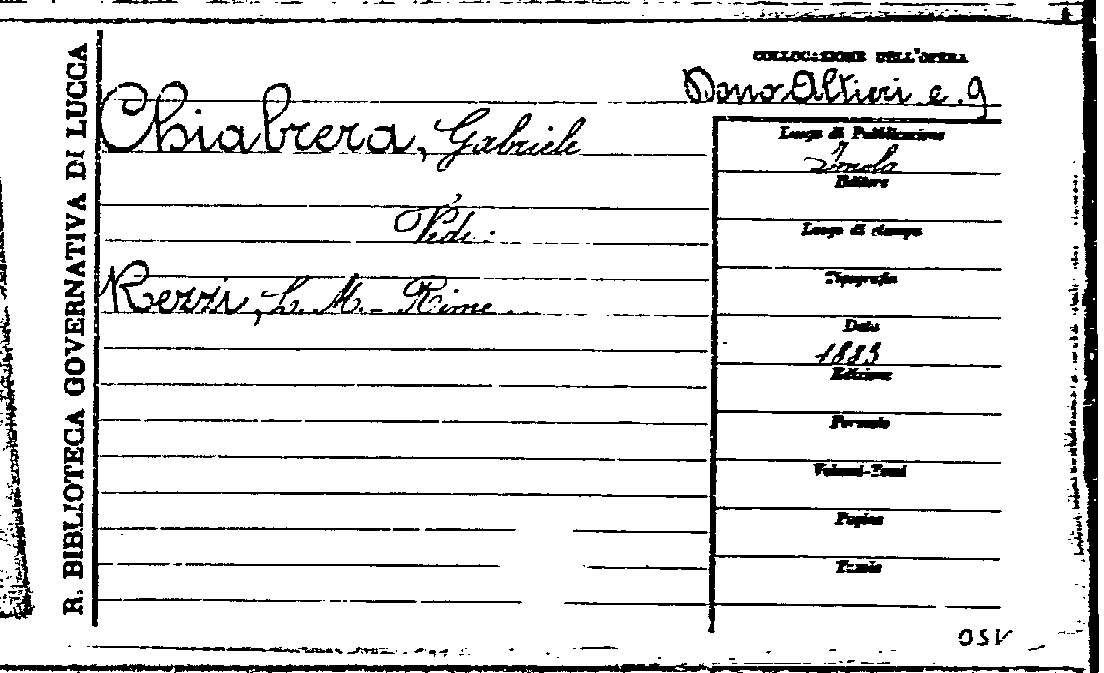 R. BIBLIOTECA GOVERNATIVA DI LUCCA
Chiabrera, Gabriele
Vedi:
Rezzi, L. M. - Rime
COLLOCAZIONE DELL'OPERA
Dono Altieri e. 9
Luogo di Pubblicazione
Imola
Editore
Luogo di stampa
Tipografia
Data
1883
Edizione
Formato
Volumi-Tomi
Pagine
Tavole